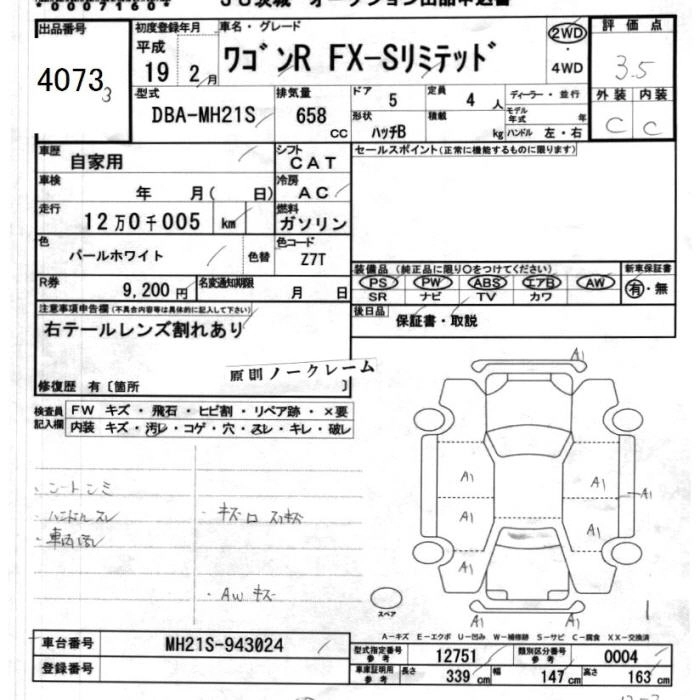 出品番号
4073
3
初度登録年月
平成
19 2月
車名・グレード
ワゴンR FX-Sリミテッド
2WD
・
4WD
評価点
3.5
外装 内装
C C
型式
DBA-MH21S
排気量
658
CC
ドア
5
定員
4 人
ディーラー・並行
形状
ハッチB
積載
kg
モデル年式
年
ハンドル 左・右
車歴
自家用
シフト
CAT
セールスポイント(正常に機能するものに限ります)
車検
年 月( 日)
冷房
AC
走行
12万0千005 km
燃料
ガソリン
色
パールホワイト
色替
色コード
Z7T
装備品(純正品に限り○をつけてください)
新車保証書
PS PW ABS エアB AW
SR ナビ TV カワ
有・無
R券
9,200円
名変通知期限
月 日
後日品
保証書・取説
注意事項申告欄(不具合内容等は具体的に記入して下さい)
右テールレンズ割れあり
原則ノークレーム
修復歴 有〔箇所 〕
検査員記入欄
FW キズ・飛石・ヒビ割・リペア跡・×要
内装 キズ・汚レ・コゲ・穴・スレ・キレ・破レ
・ハンドルスレ
・AW キズ
A1
A1
A1
A1
A1
A1
A1
A1
A1
スペア
A-キズ E-エクボ U-凹み W-補修跡 S-サビ C-腐食 XX-交換済
車台番号
MH21S-943024
登録番号
型式指定番号
参考
12751
類別区分番号
参考
0004
車庫証明用
参考
長さ
339 cm
幅
147 cm
高さ
163 cm